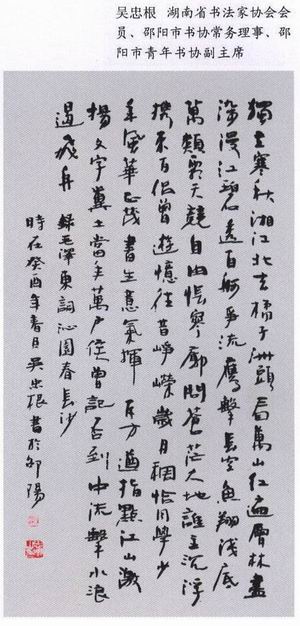 吴忠根 湖南省书法家协会会
员、邵阳市书协常务理事、邵
阳市青年书协副主席
獨立寒秋湘江北去橘子洲頭看萬山紅遍層林盡
染漫江碧透百舸爭流鷹擊長空魚翔淺底
萬類霜天競自由悵寥廓問蒼茫大地誰主沉浮
攜來百侶曾遊憶往昔崢嶸歲月稠恰同學少
年風華正茂書生意氣揮斥方遒指點江山激
揚文字糞土當年萬户侯曾記否到中流擊水浪
遏飛舟
録毛澤東詞沁園春長沙
時在癸酉年春月吳忠根書於邵陽